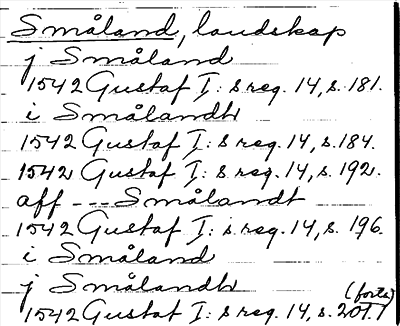 Småland, landskap
j Småland
1542 Gustaf I: s reg. 14, s. 181.
i Smålandh
1542 Gustaf I: s reg. 14, s. 184.
1542 Gustaf I: s reg. 14, s. 192.
aff --- Smålandt
1542 Gustaf I: s reg. 14, s. 196.
i Småland
j Smålandh
(forts)
1542 Gustaf I: s reg. 14, s. 207.